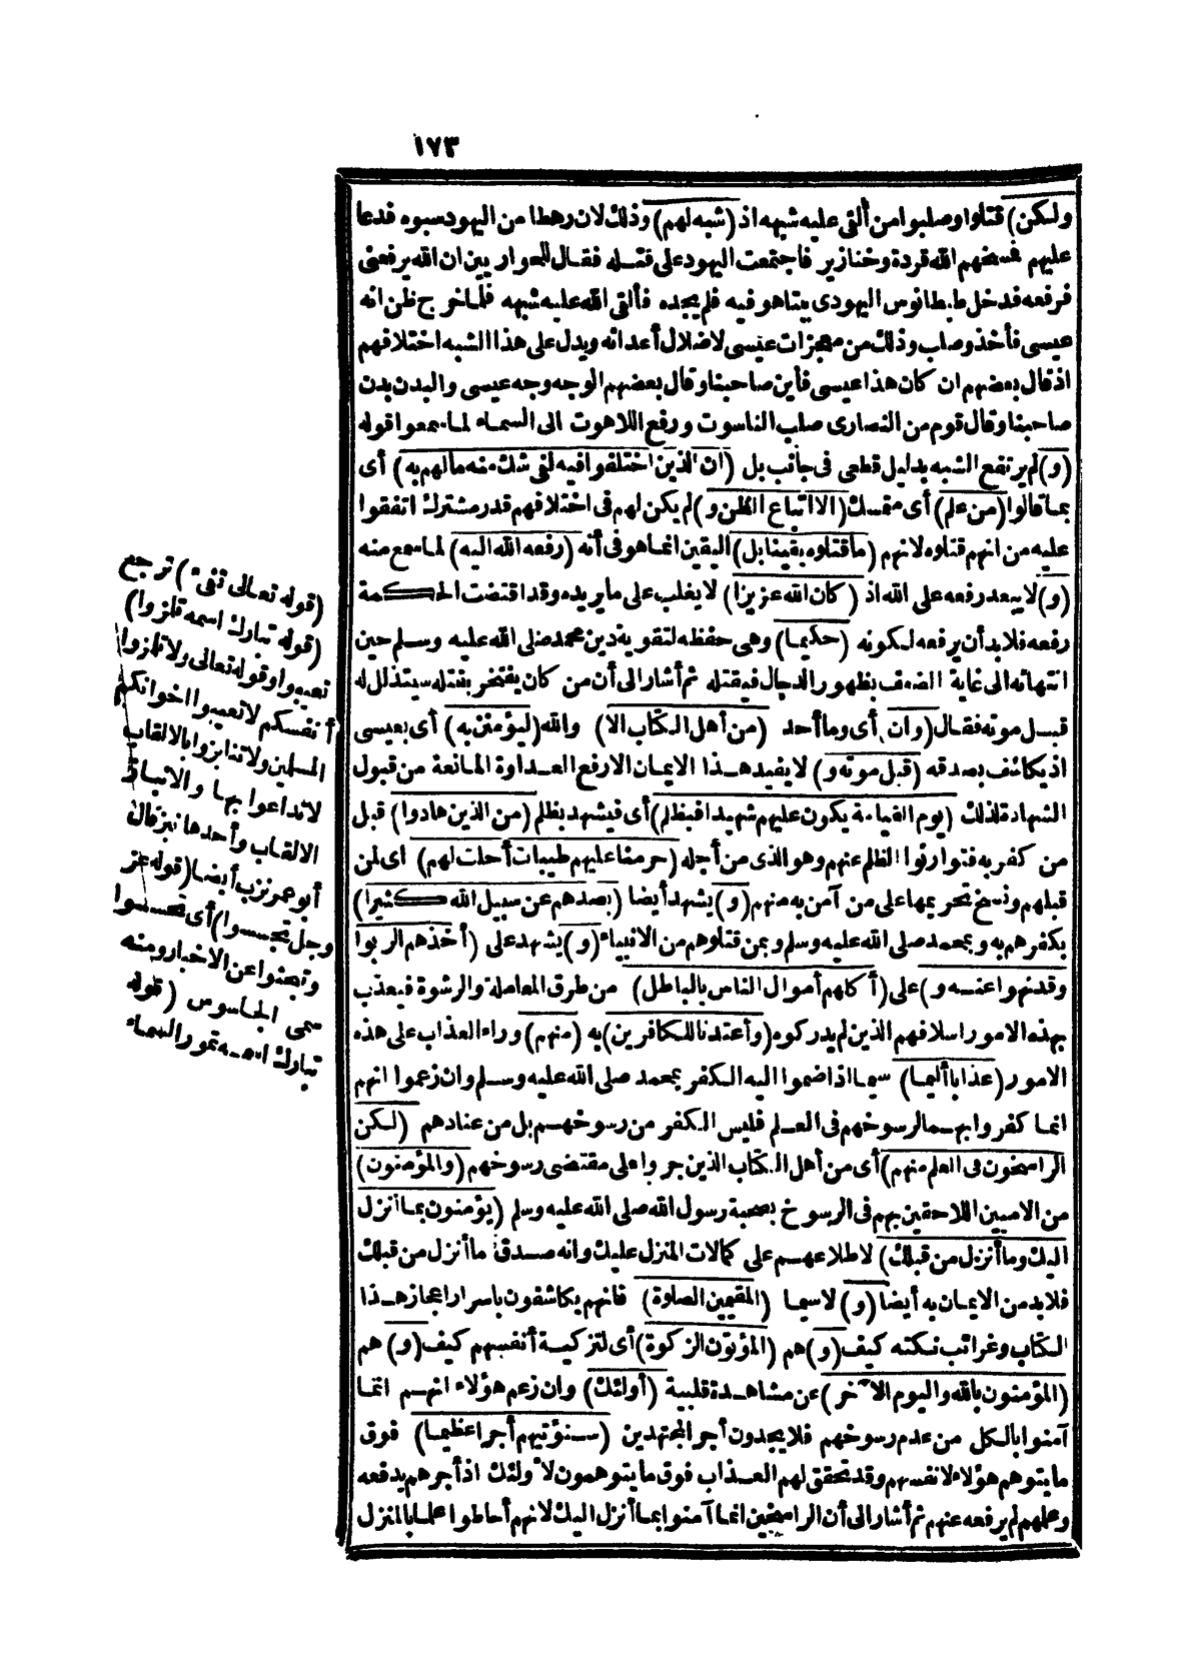 ١٧٣
ولكن) قتلوا وصلبوا من ألقى عليه شبهه اذ (شبه لهم) وذلك لان رهطا من اليهود سبوه فدعا
عليهم فمسخهم الله قردة وخنازير فاجتمعت اليهود على قتله فقال للحواريين ان الله يرفعني
فرفعه فدخل طيطانوس اليهودى بيتا هو فيه فلم يجده فألقى الله عليه شبهه فلما خرج ظن انه
عيسى فأخذ وصلب وذلك من معجزات عيسى لاضلال أعدائه ويدل على هذا الشبه اختلافهم
اذ قال بعضهم ان كان هذا عيسى فأين صاحبنا وقال بعضهم الوجه وجه عيسى والبدن بدن
صاحبنا وقال قوم من النصارى صلب الناسوت ورفع اللاهوت الى السماء لما سمعوا قوله
(و) لم يرتفع الشبه بدليل قطعى فى جانب بل (ان الذين اختلفوا فيه لفى شك منه مالهم به) أى
بما قالوا (من علم) أى متمسك (الا اتباع الظن و) لم يكن لهم فى اختلافهم قدر مشترك اتفقوا
عليه من انهم قتلوه لانهم (ماقتلوه يقينا بل) اليقين انما هو فى أنه (رفعه الله اليه) لما سمع منه
(و) لا يبعد رفعه على الله اذ (كان الله عزيزا) لا يغلب على ما يريده وقد اقتضت الحكمة
رفعه فلا بد أن يرفعه لكونه (حكيما) وهى حفظه لتقوية دين محمد صلى الله عليه وسلم حين
انتهائه الى غاية الضعف بظهور الدجال فيقتله ثم أشار الى أن من كان يفتخر بقتله سيتذلل له
قبل موته فقال (وان) أى وما أحد (من أهل الكتاب الا) والله (ليؤمنن به) أى بعيسى
اذ يكاشف بصدقه (قبل موته و) لا يفيد هذا الايمان الا رفع العداوة المانعة من قبول
الشهادة لذلك (يوم القيامة يكون عليهم شهيدا فبظلم) أى فيشهد بظلم (من الذين هادوا) قبل
من كفر به فتوارثوا الظلم عنهم وهو الذى من أجله (حرمنا عليهم طيبات أحلت لهم) اى لمن
قبلهم ونسخ تحريمها على من آمن به منهم (و) يشهد أيضا (بصدهم عن سبيل الله كثيرا)
بكفرهم به وبمحمد صلى الله عليه وسلم وبمن قتلوهم من الانبياء (و) يشهد على (أخذهم الربوا
وقد نهوا عنه و) على (أكلهم أموال الناس بالباطل) من طرق المعاملة والرشوة فيعذب
بهذه الامور اسلافهم الذين لم يدركوه (وأعتدنا للكافرين) به (منهم) وراء العذاب على هذه
الامور (عذابا أليما) سيما اذا ضموا اليه الكفر بمحمد صلى الله عليه وسلم وان زعموا انهم
انما كفروا بهما لرسوخهم فى العلم فليس الكفر من رسوخهم بل من عنادهم (لكن
الراسخون فى العلم منهم) أى من أهل الكتاب الذين جروا على مقتضى رسوخهم (والمؤمنون)
من الاميين اللاحقين بهم فى الرسوخ بصحبة رسول الله صلى الله عليه وسلم (يؤمنون بما أنزل
اليك وما أنزل من قبلك) لاطلاعهم على كمالات المنزل عليك وانه صدق ما أنزل من قبلك
فلا بد من الايمان به أيضا (و) لا سيما (المقيمين الصلوة) فانهم يكاشفون باسرار اعجاز هذا
الكتاب وغرائب نكته كيف (و) هم (المؤتون الزكوة) أى لتزكية أنفسهم كيف (و) هم
(المؤمنون بالله واليوم الآخر) عن مشاهدة قلبية (أولئك) وان زعم هؤلاء انهم انما
آمنوا بالكل من عدم رسوخهم فلا يجدون أجر المجتهدين (سنؤتيهم أجرا عظيما) فوق
ما يتوهم هؤلاء لانفسهم وقد تحقق لهم العذاب فوق ما يتوهمون لأولئك اذ أجرهم يدفعه
وعلمهم لم يرفعه عنهم ثم أشار الى أن الراسخين انما آمنوا بما أنزل اليك لانهم أحاطوا علما بالمنزل
(قوله تعالى تفىء) ترجع
(قوله تبارك اسمه تلمزوا)
تعيبوا وقوله تعالى ولا تلمزوا
أنفسكم لا تعيبوا اخوانكم
المسلمين ولا تنابزوا بالالقاب
لا تداعوا بها والانباز
الالقاب وأحدها نبز قال
أبو عمر نزب أيضا (قوله عز
وجل تجسسوا) أى تحسسوا
وتبحثوا عن الاخبار ومنه
سمى الجاسوس (قوله
تبارك اسمه تمور السماء